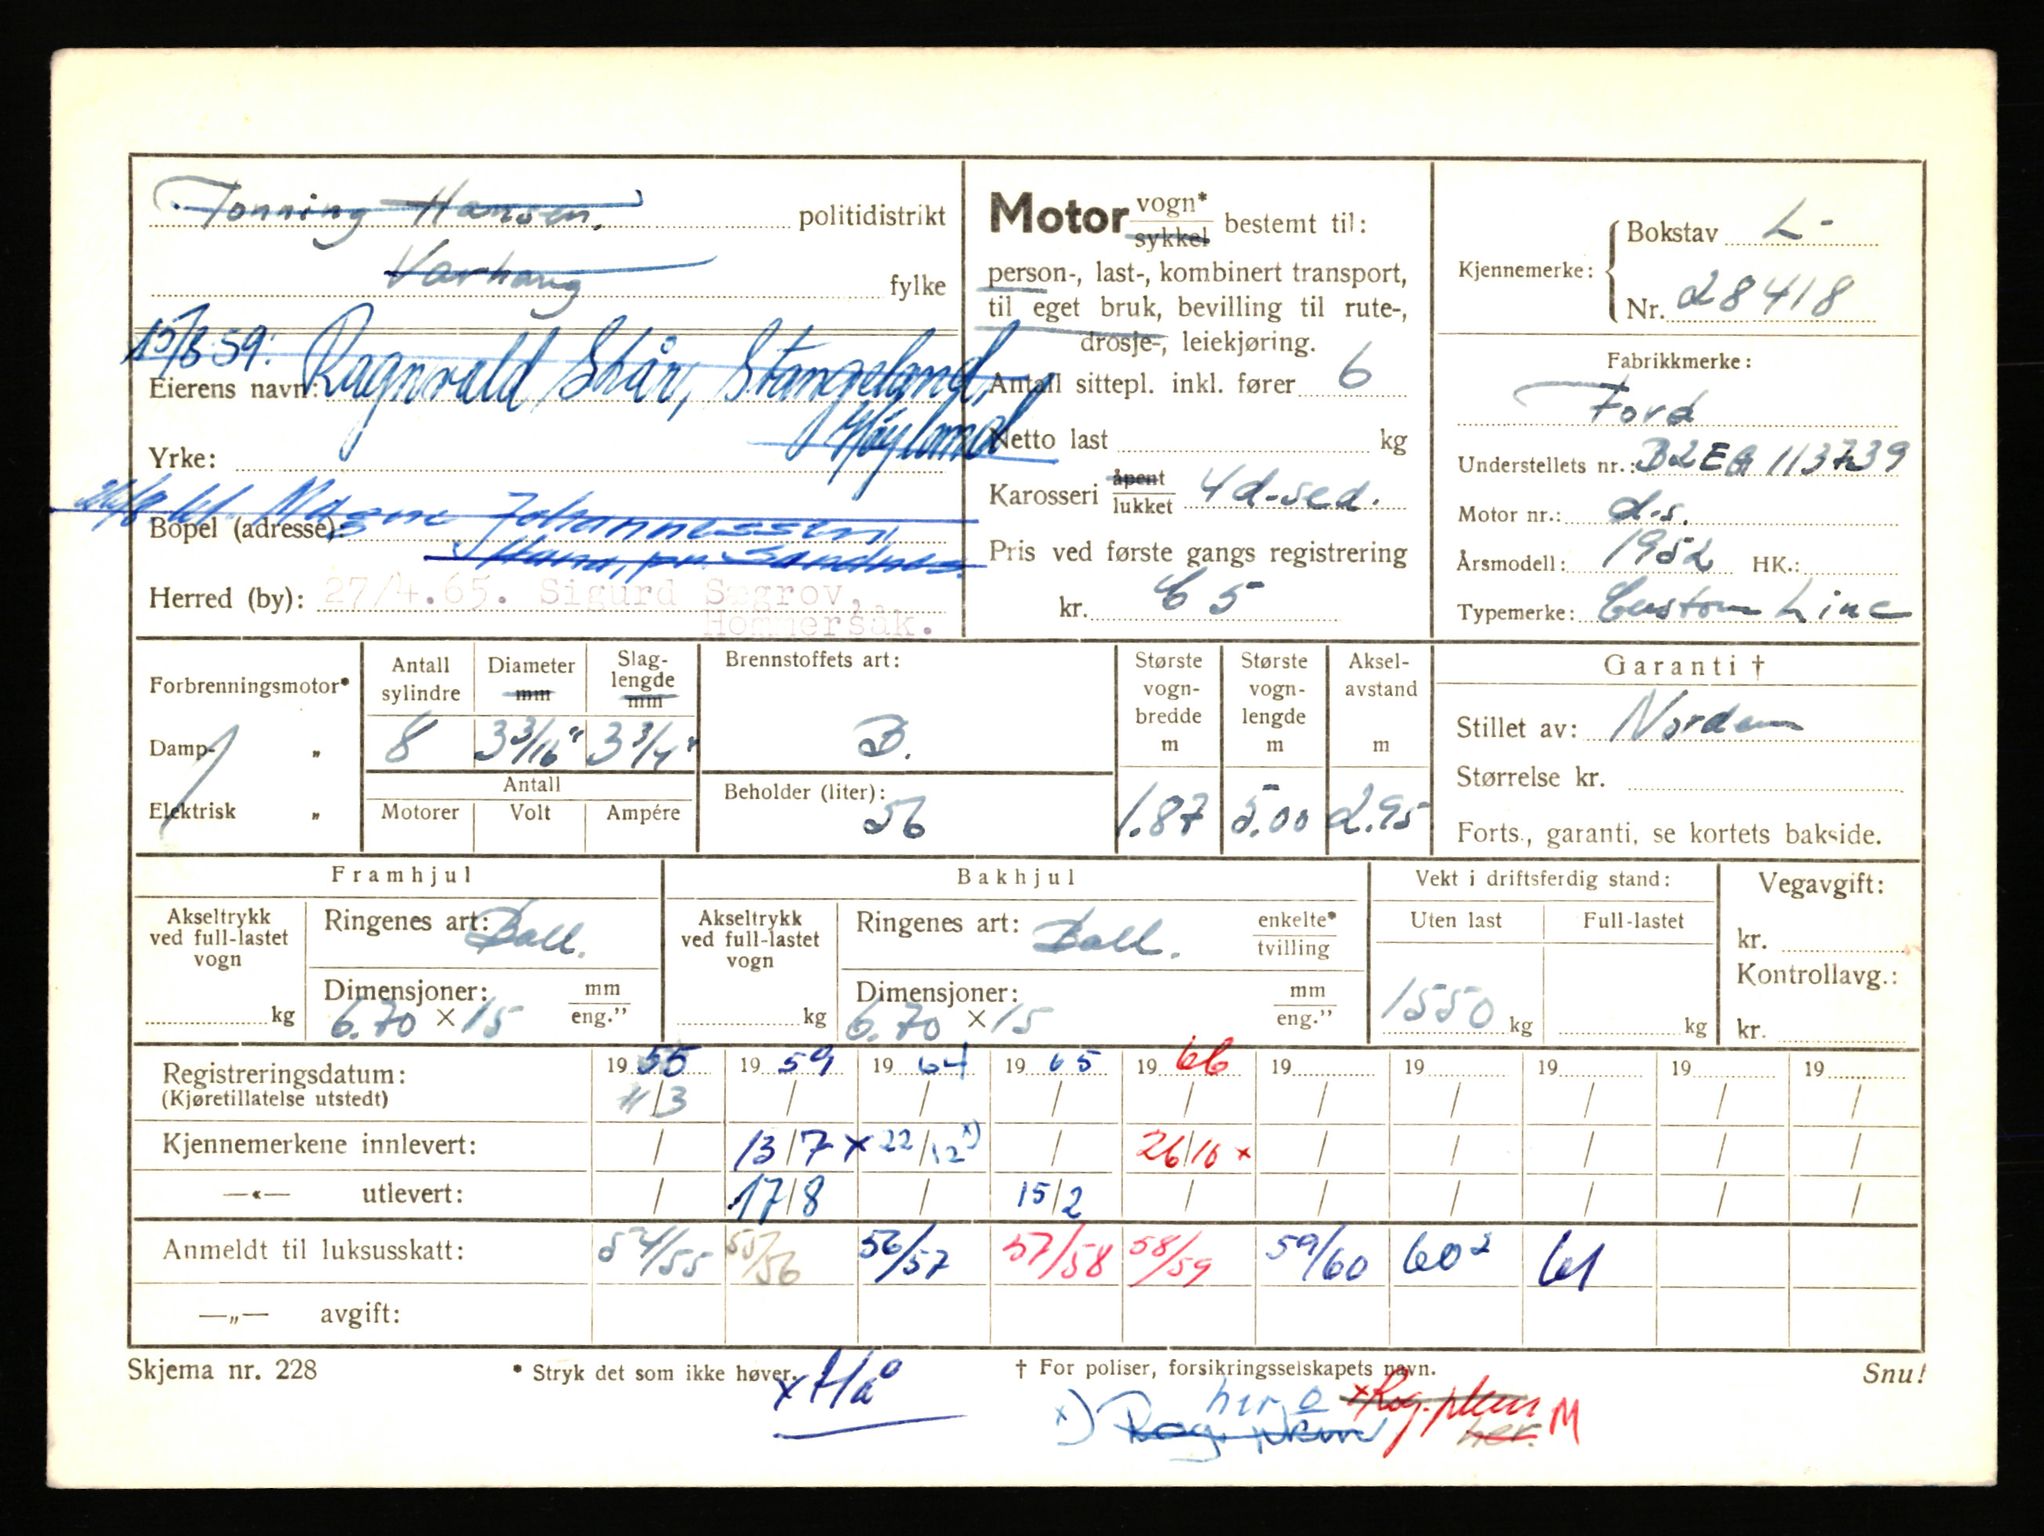 Tonning Hansen, politidistrikt
Varhaug fylke
15/8 59: Ragnvald Skår, Stangeland,
Eierens navn:
Høyland
Yrke:
Magne Johannessen,
Bopel (adresse):
Hana, pr. Sandnes.
Herred (by): 27/4.65. Sigurd Sægrov,
Hommersåk.
Motor vogn* sykkel bestemt til:
person-, last-, kombinert transport,
til eget bruk, bevilling til rute-,
drosje-, leiekjøring.
Antall sittepl. inkl. fører 6
Netto last kg
Karosseri åpent lukket 4d-sed.
Pris ved første gangs registrering
kr. C 5
Kjennemerke: Bokstav L-
Nr. 28418
Fabrikkmerke:
Ford
Understellets nr.: B2EA 113739
Motor nr.: d.s.
Årsmodell: 1952 HK.:
Typemerke: Custom Line
Forbrenningsmotor*
Damp- „
Elektrisk „
Antall sylindre
8
Diameter mm
3 3/16"
Slag- lengde mm
3 3/4"
Antall
Motorer Volt Ampére
Brennstoffets art:
B.
Beholder (liter):
56
Største vogn- bredde m
1.87
Største vogn- lengde m
5.00
Aksel- avstand m
2.95
Garanti †
Stillet av: Norden
Størrelse kr.
Forts., garanti, se kortets bakside.
Framhjul
Akseltrykk ved full-lastet vogn
kg
Ringenes art: Ball.
Dimensjoner: mm eng."
6.70 × 15
Bakhjul
Akseltrykk ved full-lastet vogn
kg
Ringenes art: Ball. enkelte* tvilling
Dimensjoner: mm eng."
6.70 × 15
Vekt i driftsferdig stand:
Uten last Full-lastet
1550 kg kg
Vegavgift:
kr.
Kontrollavg.:
kr.
Registreringsdatum: 19 55 19 59 19 64 19 65 19 66 19 19 19 19 19
(Kjøretillatelse utstedt) / / / / / / / / /
Kjennemerkene innlevert: / 13/7 x 22/12 x) / 26/10 x / / / / /
—«— utlevert: / 17/8 / 15/2 / / / / / /
Anmeldt til luksusskatt: 54/55 55/56 56/57 57/58 58/59 59/60 60² 61
—„— avgift:
Skjema nr. 228 * Stryk det som ikke høver. † For poliser, forsikringsselskapets navn. Snu!
x Hå
x) her
x Rog. her. M